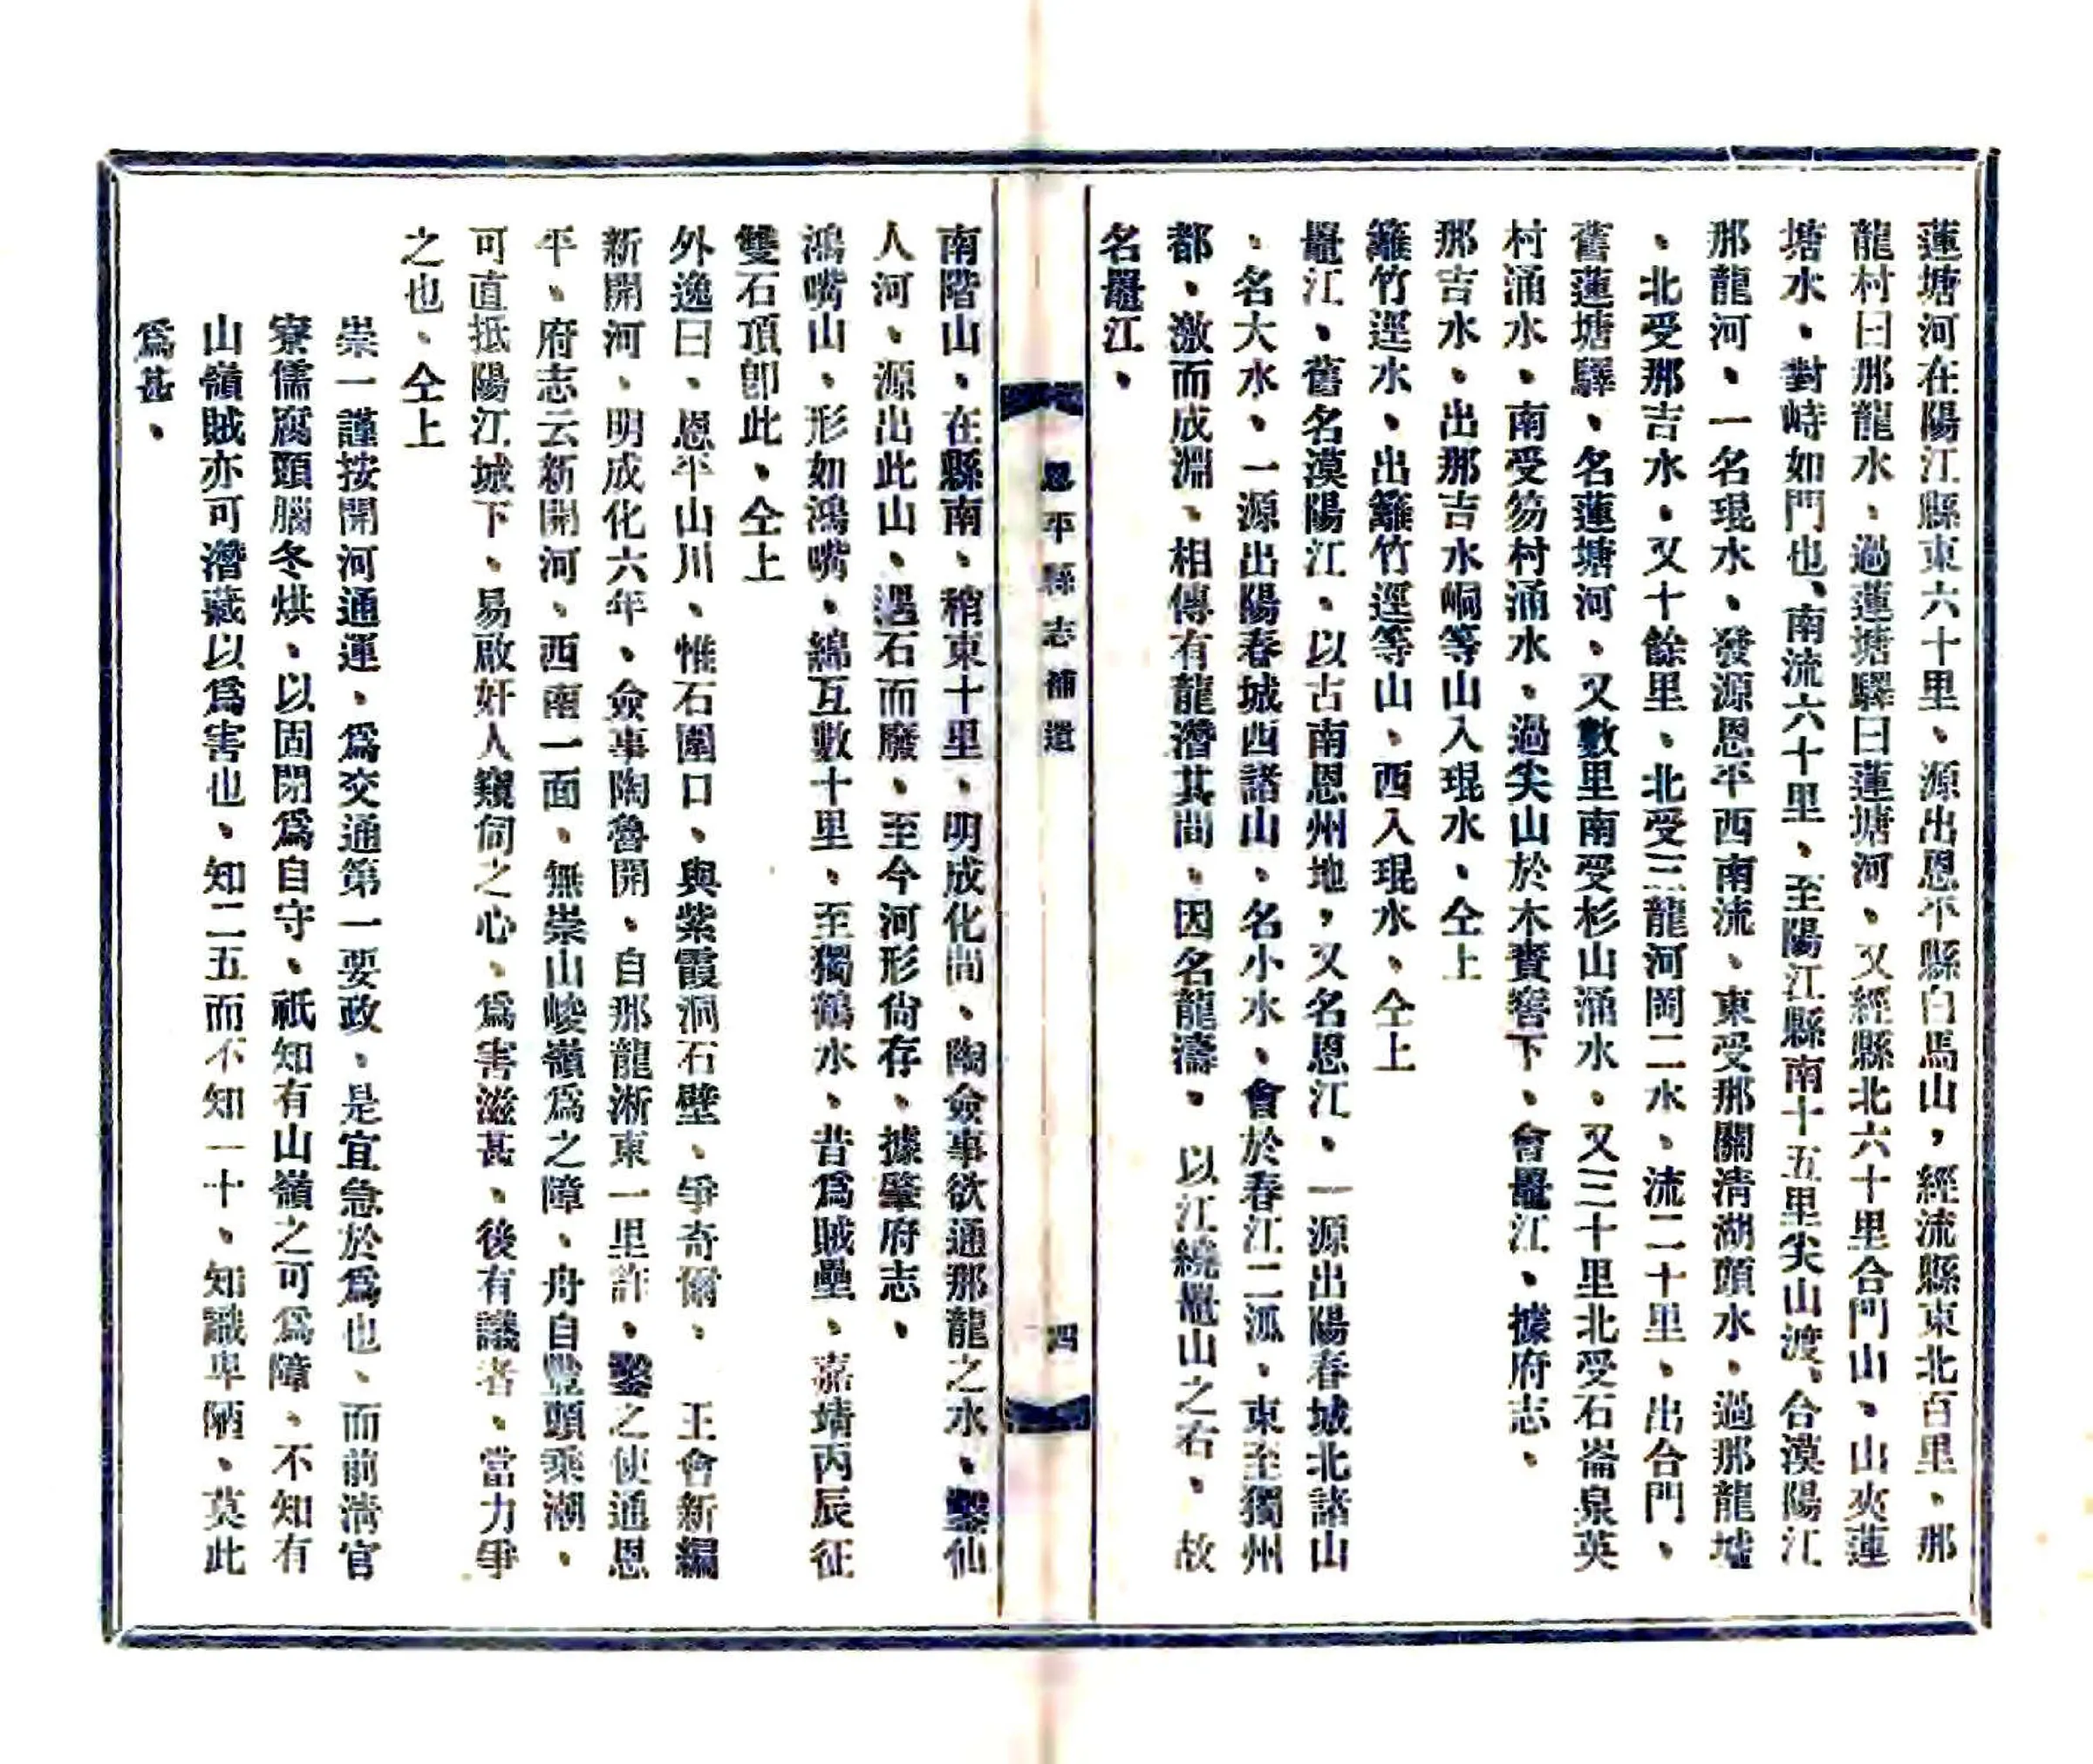 蓮塘河在陽江縣東六十里、源出恩平縣白馬山，經流縣東北百里、那
龍村曰那龍水、過蓮塘驛曰蓮塘河、又經縣北六十里合門山、山夾蓮
塘水、對峙如門也、南流六十里、至陽江縣南十五里尖山渡、合漠陽江
那龍河、一名琨水、發源恩平西南流、東受那關淸湖頭水、過那龍墟
、北受那吉水、又十餘里、北受三龍河岡二水、流二十里、出合門、
舊蓮塘驛、名蓮塘河、又數里南受杉山涌水、又三十里北受石崙泉英
村涌水、南受笏村涌水、過尖山於木賚窖下、會鼉江、據府志、
那吉水、出那吉水峒等山入琨水、仝上
籬竹逕水、出籬竹逕等山、西入琨水、仝上
鼉江、舊名漠陽江、以古南恩州地，又名恩江、一源出陽春城北諸山
、名大水、一源出陽春城西諸山、名小水、會於春江二派、東至獨州
都、激而成淵、相傳有龍潛其間、因名龍濤、以江繞鼉山之右、故
名鼉江、
恩平縣志補遺
四
南階山、在縣南、稍東十里、明成化間、陶僉事欲通那龍之水、鑿仙
人河、源出此山、遇石而廢、至今河形尙存、據肇府志、
鴻嘴山、形如鴻嘴、綿亙數十里、至獨鶴水、昔爲賊壘、嘉靖丙辰征
雙石頂卽此、仝上
外逸曰、恩平山川、惟石圍口、與紫霞洞石壁、爭奇爾、王會新編
新開河、明成化六年、僉事陶魯開、自那龍淅東一里許、鑿之使通恩
平、府志云新開河、西南一面、無崇山峻嶺爲之障、舟自蜑頭乘潮、
可直抵陽江城下、易啟奸人窺伺之心、爲害滋甚、後有議者、當力爭
之也、仝上
崇一謹按開河通運、爲交通第一要政、是宜急於爲也、而前淸官
寮儒腐頭腦冬烘、以固閉爲自守、祇知有山嶺之可爲障、不知有
山嶺賊亦可潛藏以爲害也、知二五而不知一十、知識卑陋、莫此
爲甚、